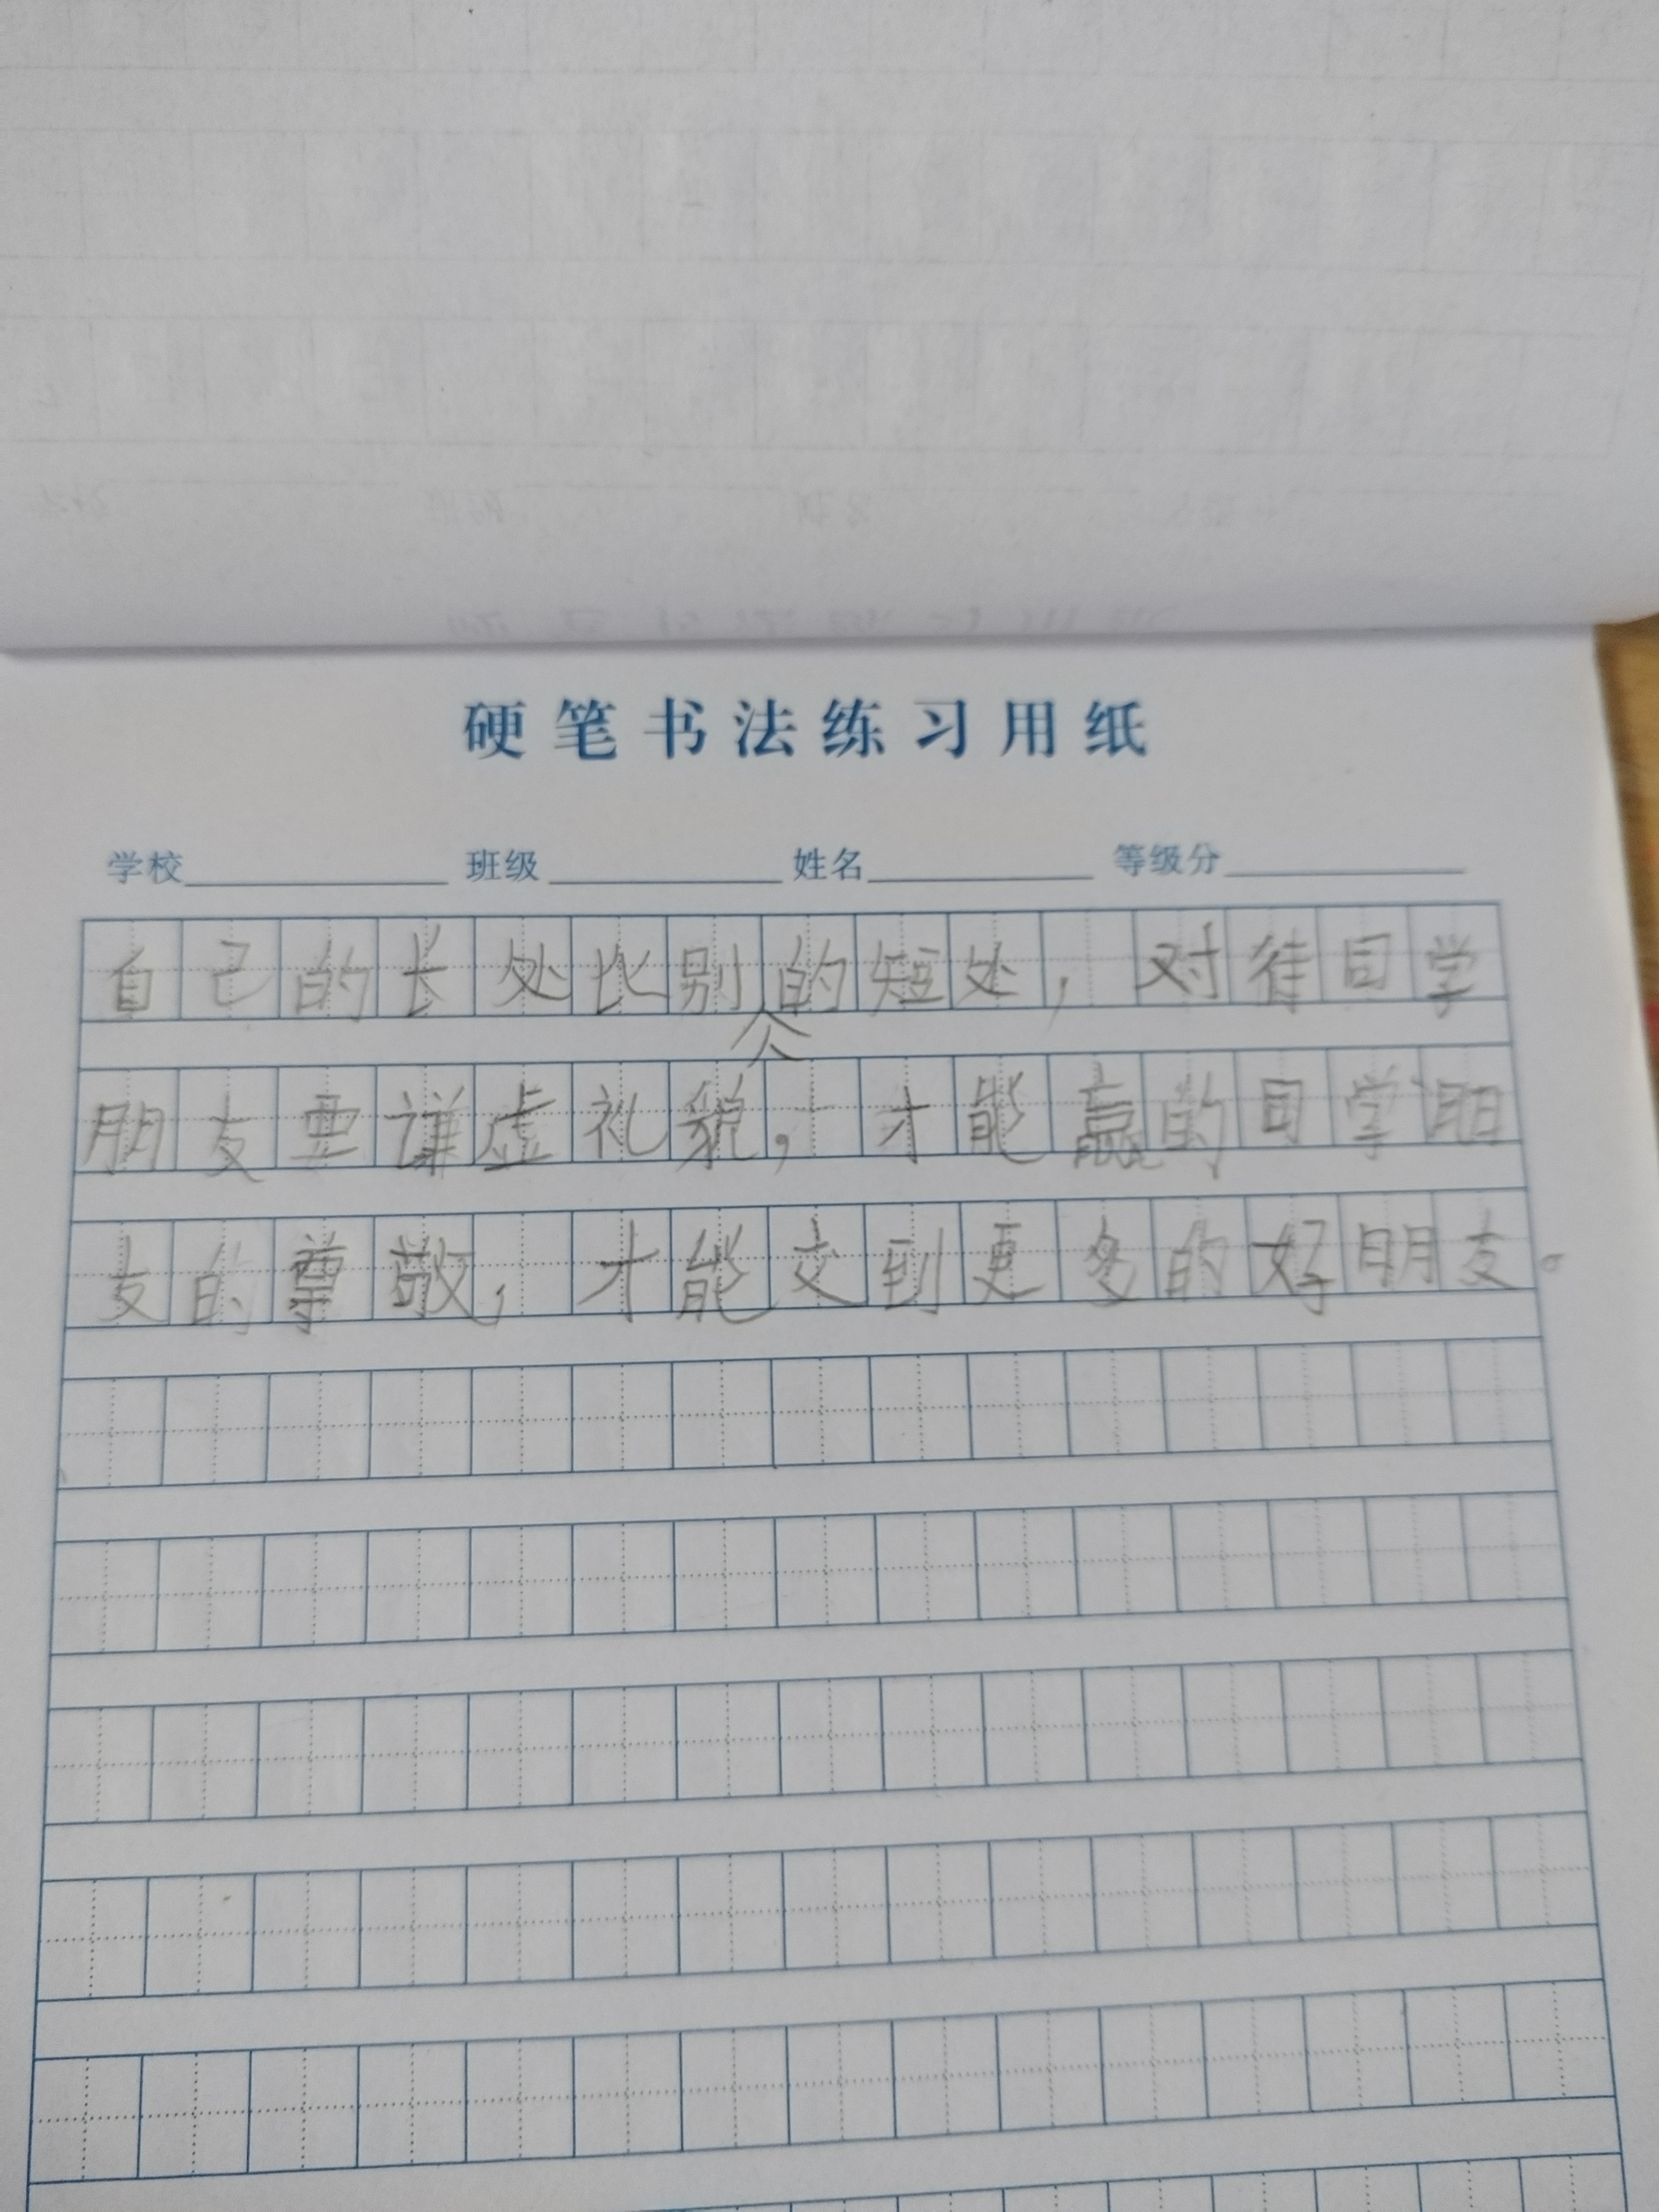 硬笔书法练习用纸
学校 班级 姓名 等级分
自己的长处比别人的短处，对待同学
朋友要谦虚礼貌，才能赢的同学朋
友的尊敬，才能交到更多的好朋友。